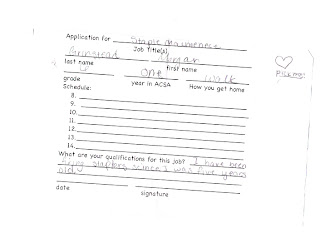 Application for Staple
Job Title(s)
last name first name
one walk
grade year in ACSA How you get home
Schedule:
8.
9.
10.
11.
12.
13.
14.
What are your qualifications for this job? I have been
staplers since I was five years
old.
date signature
PICK ME!